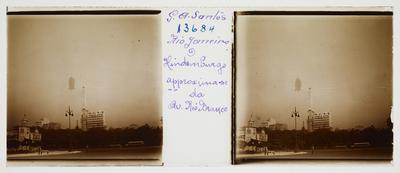 G. A. Santos
13684
Rio Janeiro
O
Hindenburgo
approxima-se
da
Av. Rio Branco